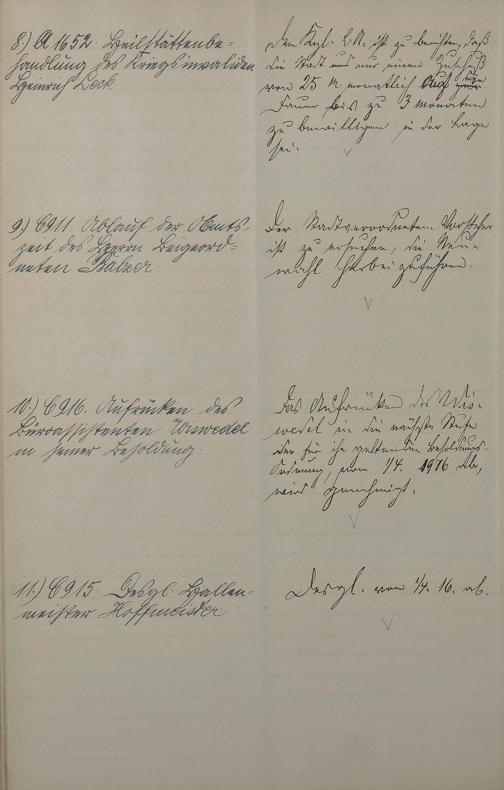 8.) A 1652. Heilstättenbe=
handlung des Kriegsinvaliden
Heinrich Leck
Dem Kgl. B.A. ist zu berichten, daß
die Stadt nur einen Zuschuß
von 25 M monatlich auf die
Dauer bis zu 3 Monaten
zu bewilligen in der Lage
sei.
9.) C 911. Ablauf der Amts=
zeit des Herrn Beigeord=
neten Balzer.
Der Stadtverordneten-Vorsteher
ist zu ersuchen, die Neu=
wahl herbeizuführen.
10.) C 916. Aufrücken des
Büroassistenten
in seiner Besoldung.
Das Aufrücken des
in die nächste Stufe
der für ihn geltenden Besoldungs-
Ordnung, vom 1/4. 1916 ab,
wird genehmigt.
11.) C 915. Desgl. Hallen=
meister Hoffmeister
Desgl. vom 1/4. 16. ab.